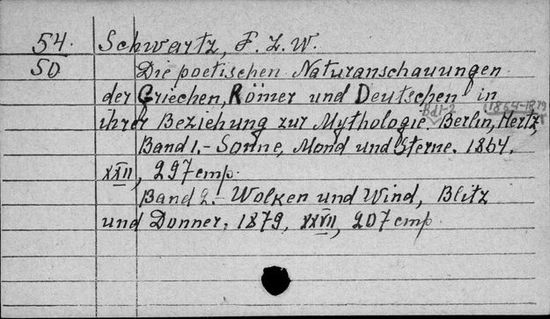 54. Schwartz, F. L. W.
50 Die poetischen Naturanschauungen
der Griechen, Römer und Deutschen in
Bd1-2 (1864-1879
ihrer Beziehung zur Mythologie. Berlin, Hertz,
Band 1.- Sonne, Mond und Sterne. 1864.
XXII, 297 стр.
Band 2.- Wolken und Wind, Blitz
und Donner. 1879, XXVII, 207 стр.